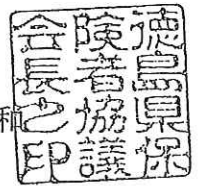 徳島県保
険者協議
会長之印